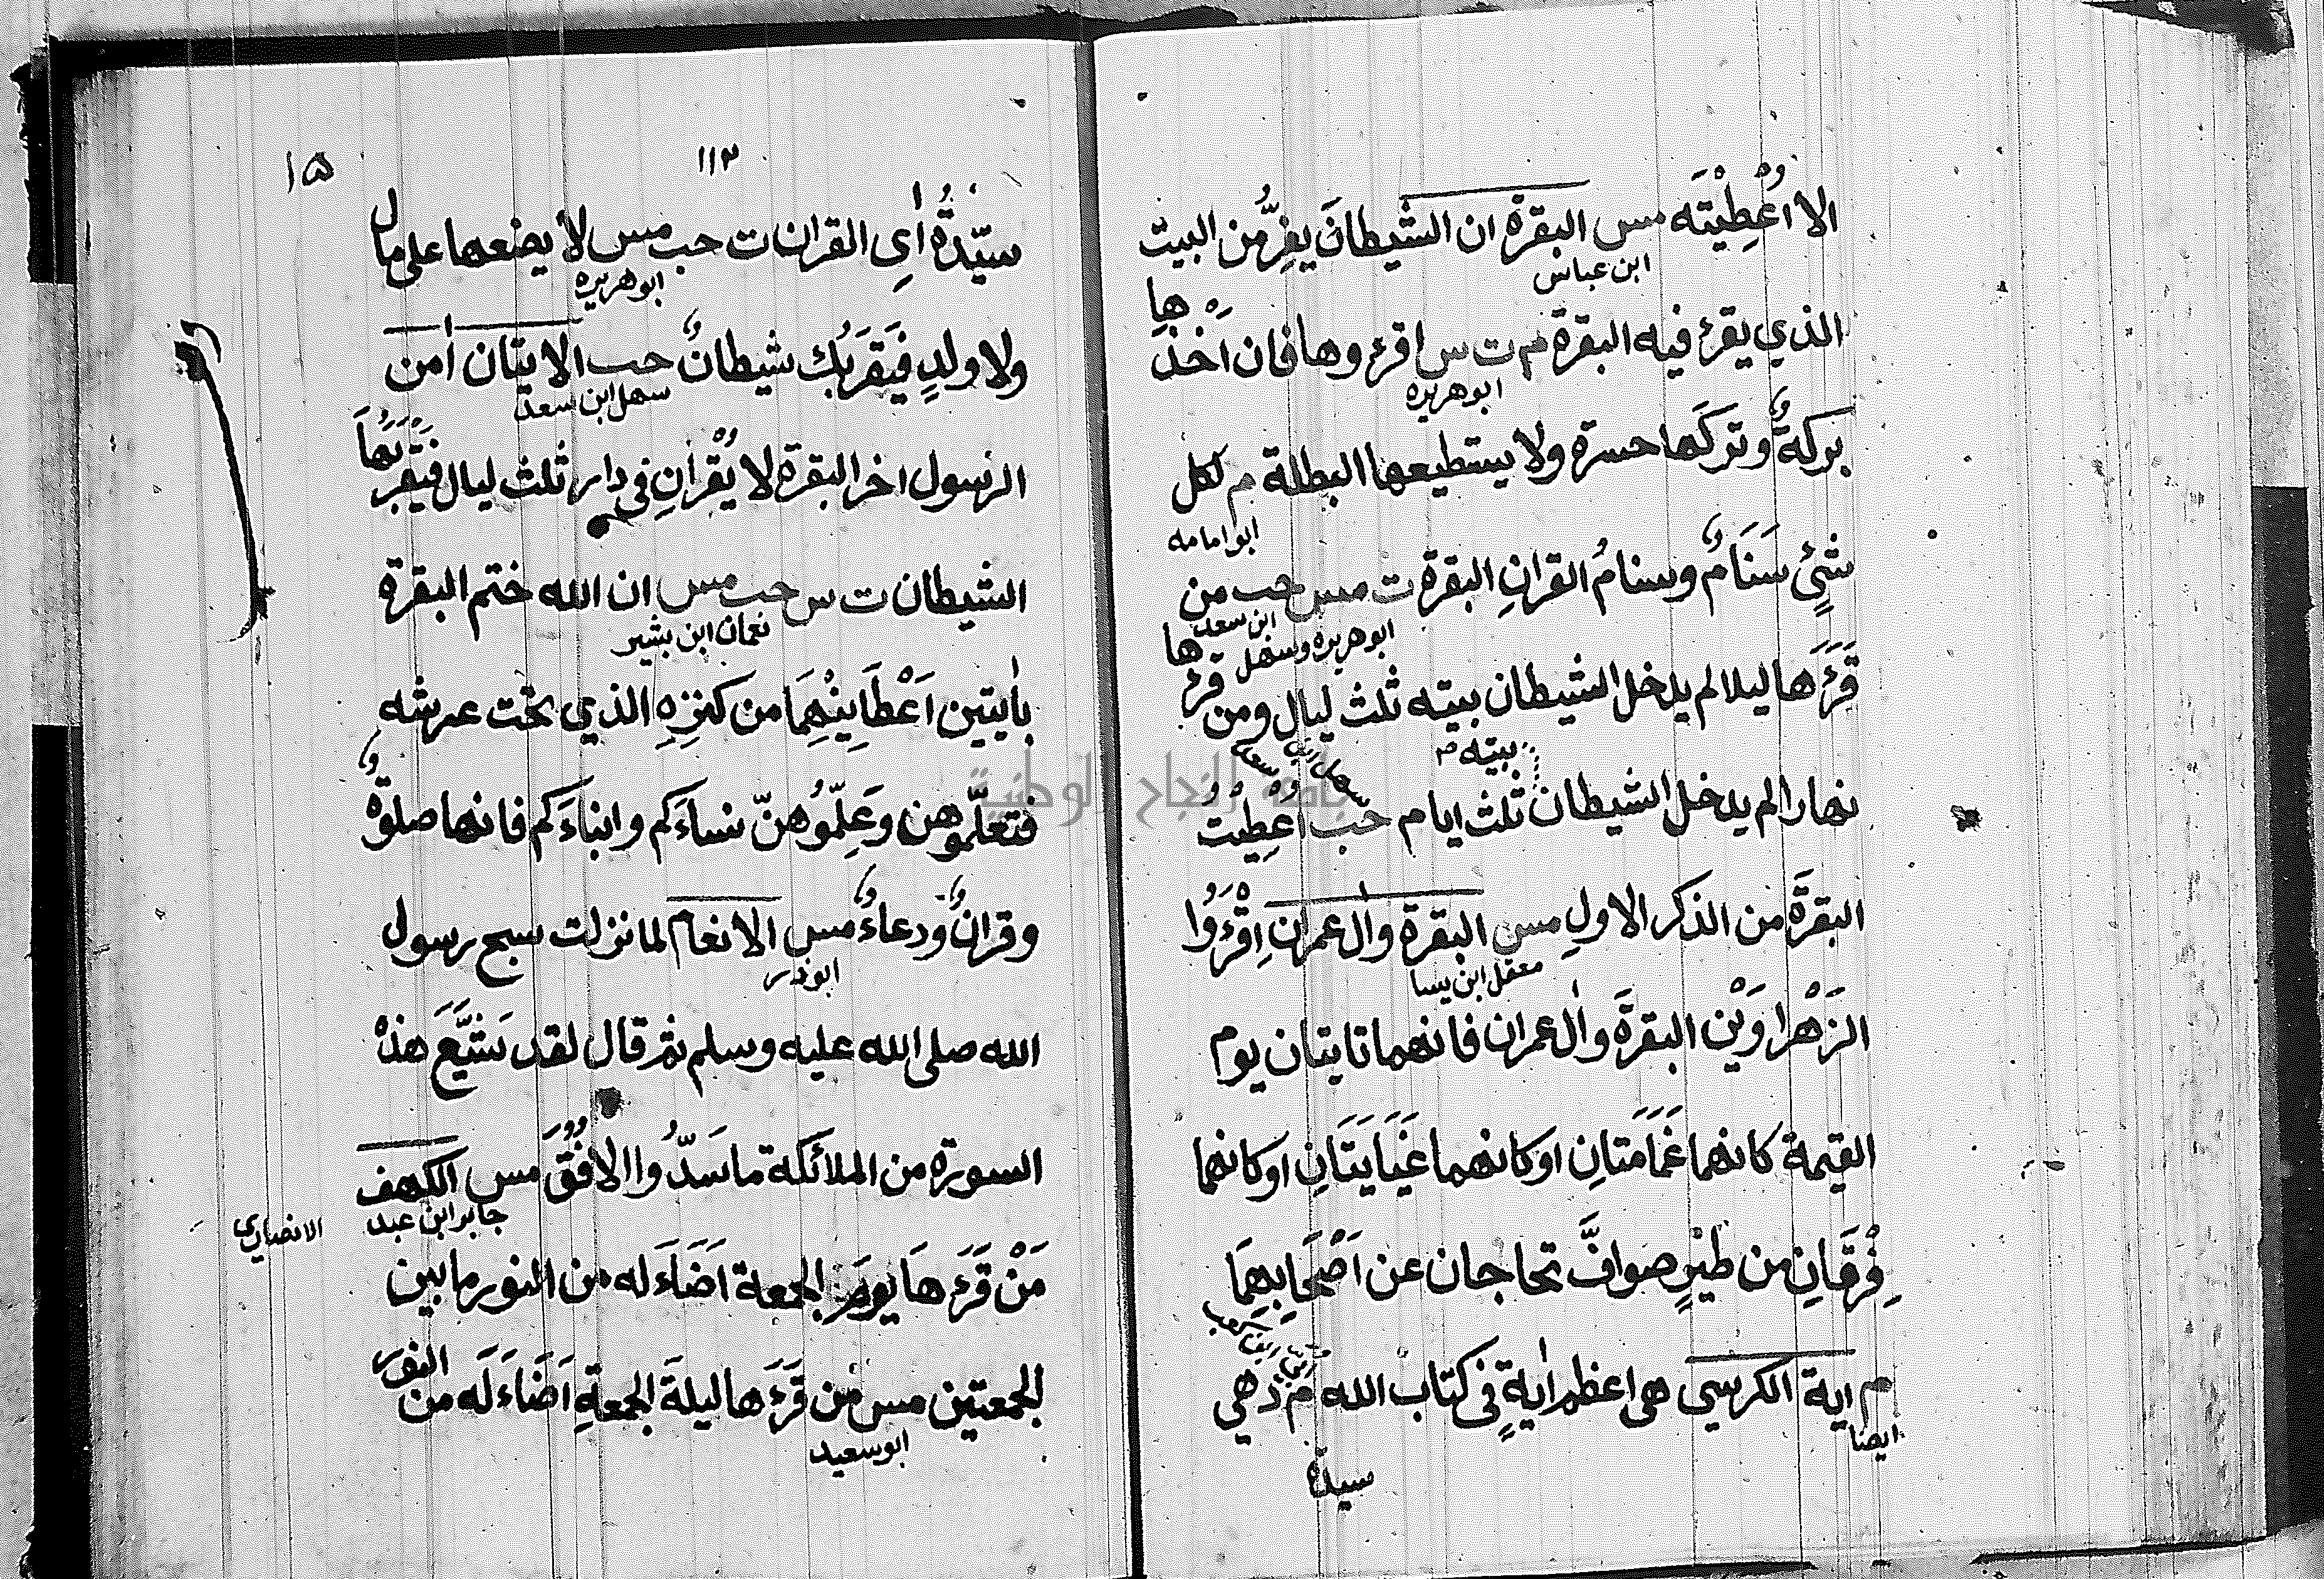 الا اُعْطِيْتَه مس البقرة ان الشيطانَ يفِرُّ من البيت
ابن عباس
الذي يقرء فيه البقرة م ت س اقرءوها فان اَخْذَها
ابو هريره
بركةٌ وتركَها حسرة ولا يستطيعها البطلة م لكل
ابو امامه
شئٍ سَنَامٌ وسنامُ القرانِ البقرة ت مس حب من
ابو هريره وسهل ابن سعد
قَرَءَها ليلا لم يدخل الشيطان بيته ثلث ليال ومن قرءها
نهارا لم يدخل الشيطان بيته ثلث ايام حب اُعْطِيْتُ
البقرةَ من الذكر الاولِ مس البقرة واٰل عمران اِقْرَءُوا
معقل ابن يسا
الزَهْراوَيْن البقرةَ واٰل عمران فانهما تاتيان يوم
القيمة كانهما غَمَامَتَانِ او كانهما غَيَايَتَانِ او كانهما
فِرْقَانِ من طَيْرٍ صوافَّ تحاجان عن اَصْحَابِهِمَا
م اية الكرسي هى اعظم اٰيةٍ فى كتاب الله م د هي
ايضا
سيدة
١١٢
١٥
سيّدةُ اٰيِ القران ت حب مس لا يضعها على مال
ابو هريره
ولا ولدٍ فَيَقْرَبُك شيطانٌ حب الايتان اٰمن
سهل ابن سعد
الرسول اخر البقرة لا يُقْرَاٰنِ فى دار ثلث ليال فَيَقْرَبُهَا
الشيطان ت س حب مس ان الله ختم البقرة
نعمان ابن بشير
باٰيتين اَعْطَانِيْهِمَا من كنزِهِ الذي تحت عرشه
فتعلّموهن وعَلِّمُوْهُنّ نساءَكم وابناءَكم فانها صلوةٌ
وقرانٌ ودعاءٌ مس الانعام لما نزلت سبح رسول
ابو ذر
الله صلى الله عليه وسلم ثم قال لقد شَيَّعَ هذه
السورة من الملائكة ما سَدُّوا الافُقَ مس الكهف
جابر ابن عبد
الانصاري
مَنْ قَرَءَهَا يومَ الجمعة اَضَاءَ له من النور ما بين
الجمعتين مس من قَرَءَها ليلةَ الجمعةِ اَضَاءَ لَه من النور
ابو سعيد
جامعة النجاح الوطنية